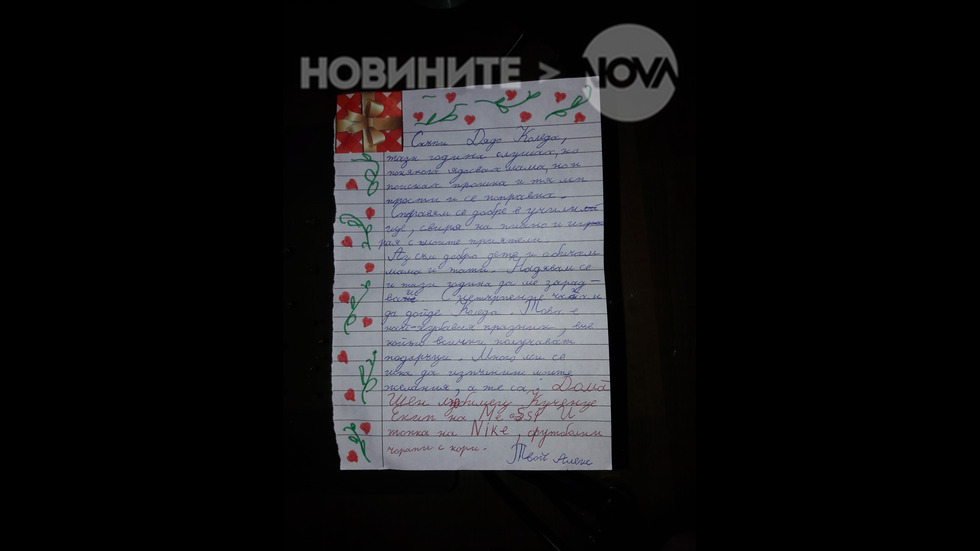 НОВИНИТЕ > NOVA
Скъпи Дядо Коледа,
тази година слушах, но
понякога ядосвах мама, но ѝ
поисках прошка и тя ми
прости и се поправих.
Справям се добре в учили
ще, свиря на пиано и иг
рая с моите приятели.
Аз съм добро дете и обичам
мама и тати. Надявам се
и тази година да ме зарад-
ва С нетърпение чакам
да дойде Коледа. Това е
най-хубавия празник, в
който всички получават
подаръци. Много ми се
иска да изпълниш моите
желания, а те са: Дома
шен любимец Кученце
Екип на Messi И
топка на Nike, футболни
чорапи с кори.
Твой Алекс